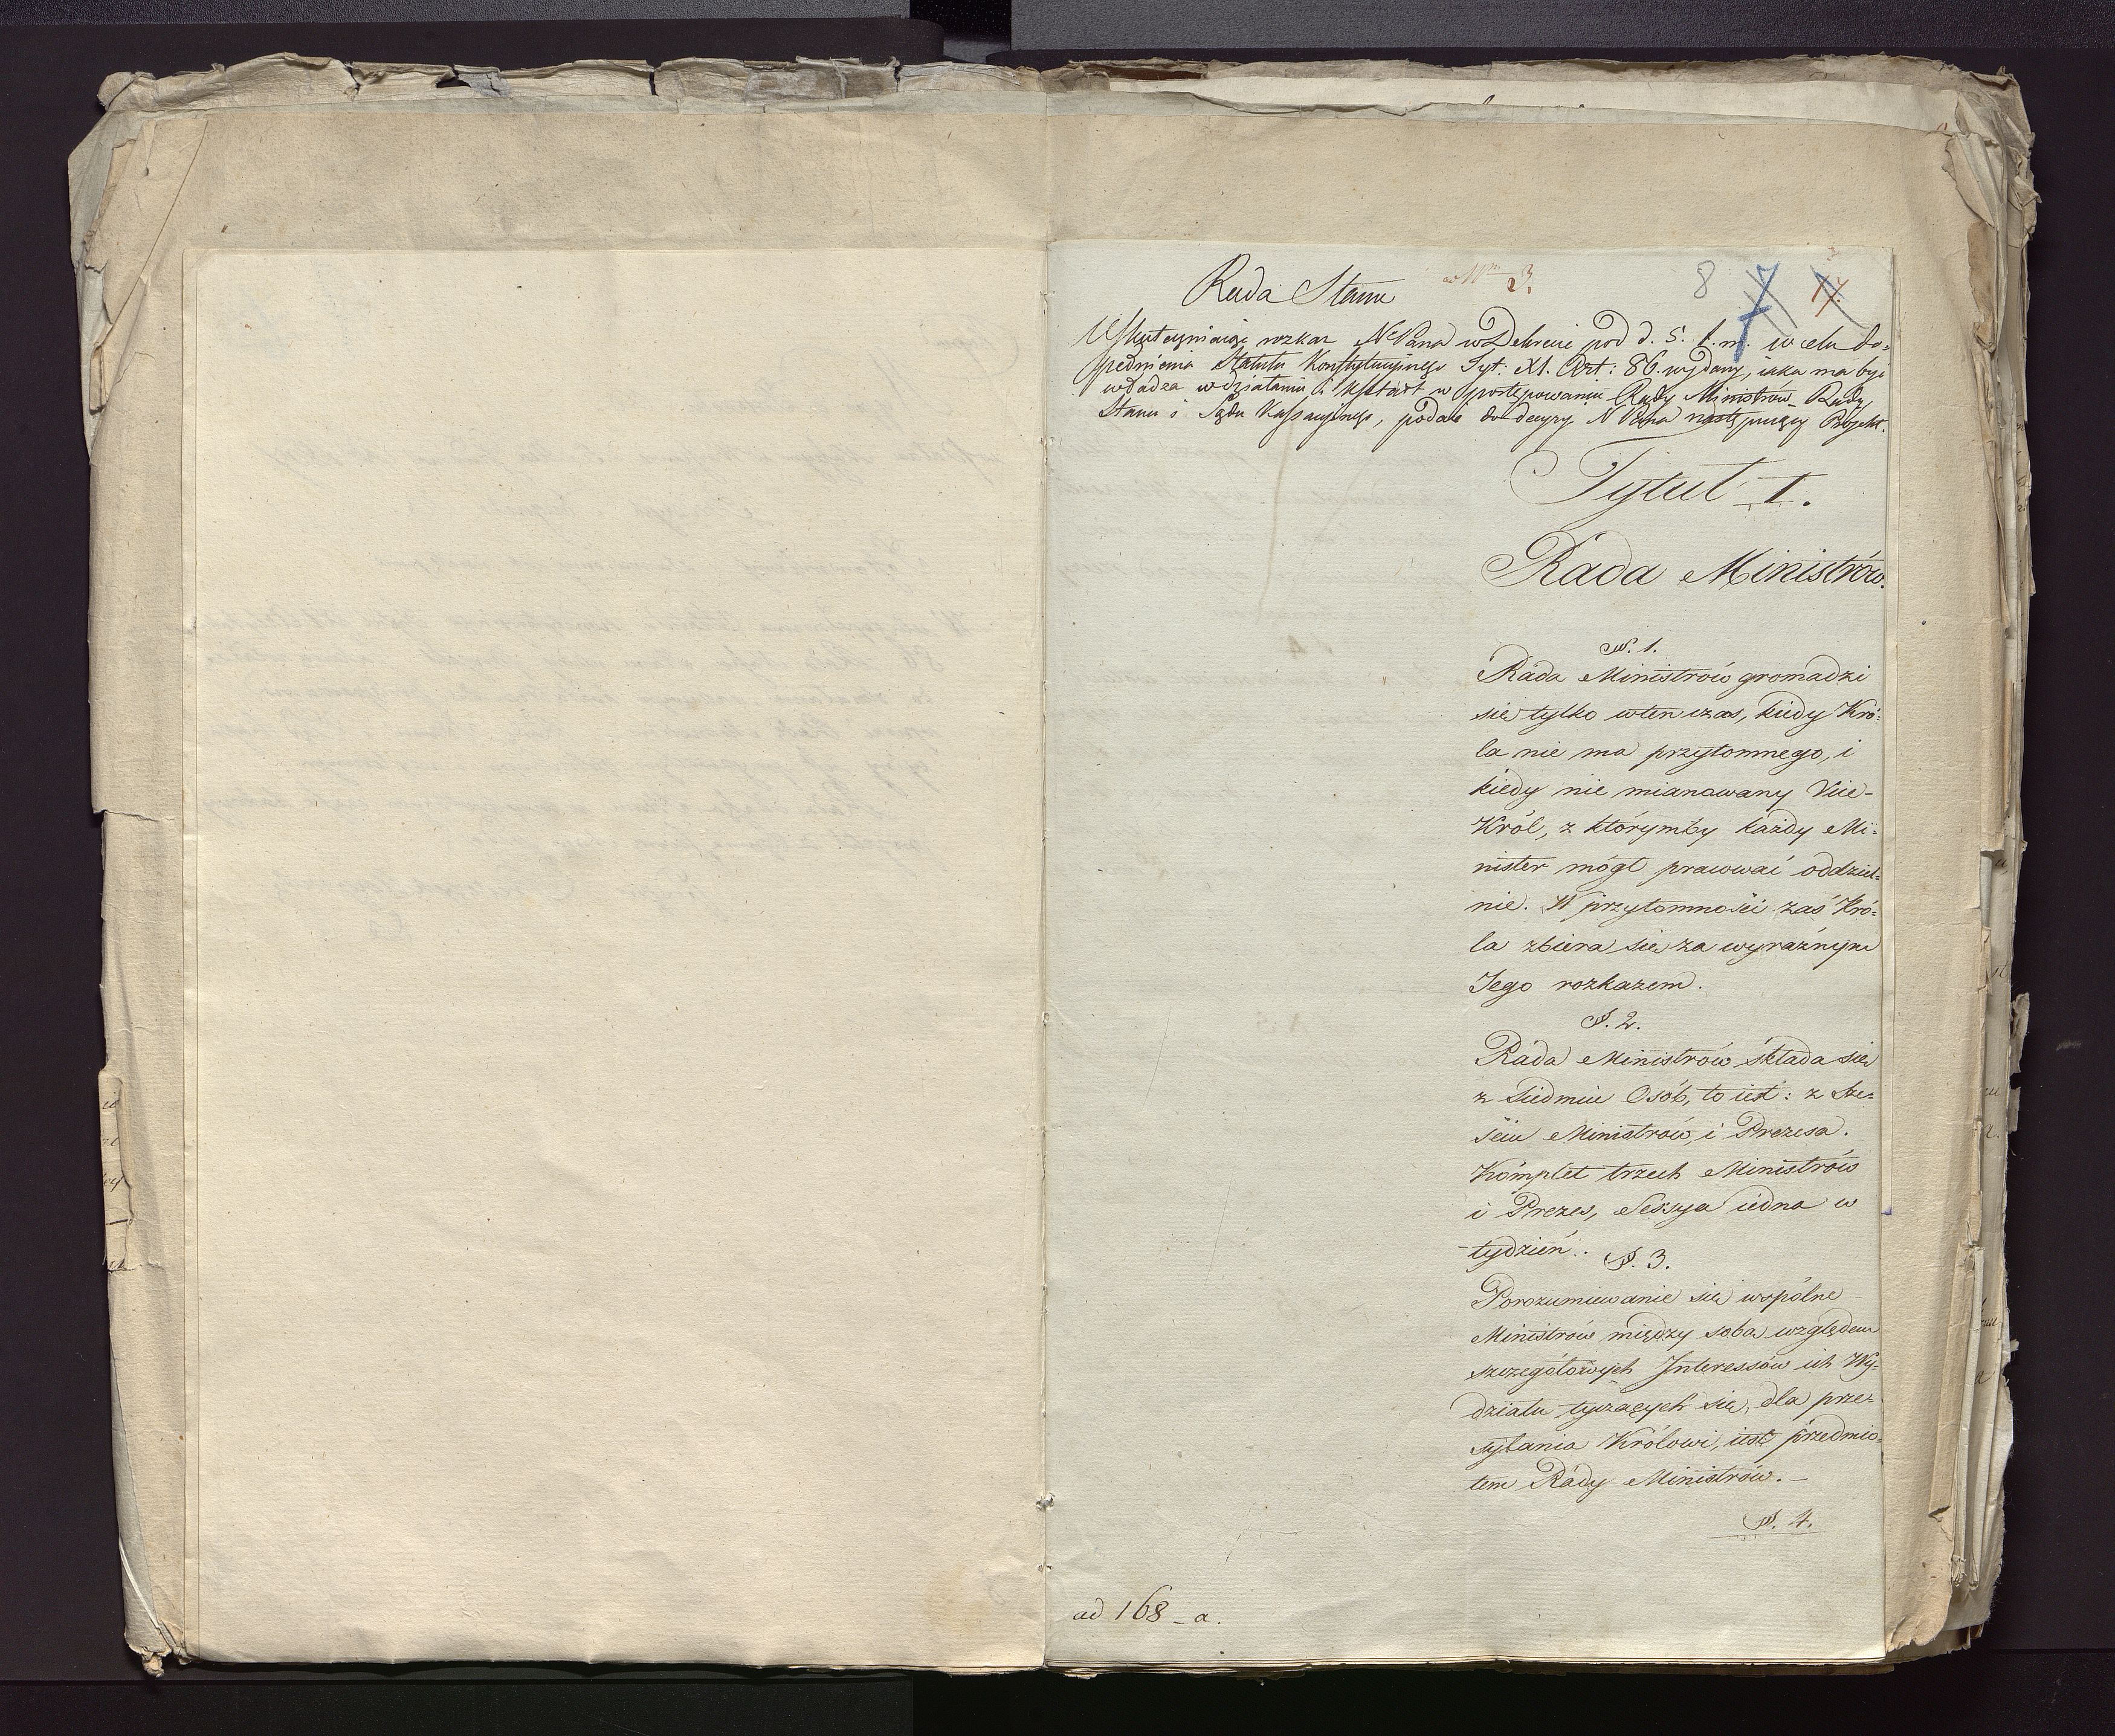 Rada Stanu
ad Nrm 3.
8 7
Uskuteczniaiąc rozkaz N. Pana w Dekrecie pod d. 5. t. m. w celu do-
pełnienia Statutu Konstytucyinego Tyt: XI. Art: 86. wydany, iaka ma być
władza w działaniu i kształt w postępowaniu Rady Ministrów Rady
Stanu i Sądu Kassacyinego, podaie do decyzyi N Pana następuiący Projekt.
Tytuł I.
Rada Ministrów.
§. 1.
Rada Ministrów gromadzi
się tylko wten czas, kiedy Kró-
la nie ma przytomnego, i
kiedy nie mianowany Vice-
Król, z którymby każdy Mi-
nister mógł pracować oddziel-
nie. W przytomności zaś Kró-
la zbiera się za wyraźnym
Jego rozkazem.
§. 2.
Rada Ministrów składa się
z Siedmiu Osób, to iest: z Sze-
ściu Ministrów, i Prezesa.
Komplet trzech Ministrów
i Prezes, Sessya iedna w
tydzień.
§. 3.
Porozumiewanie się wspólne
Ministrów między sobą względem
szczegółowych Interessów ich Wy-
działu tyczących się, dla prze-
syłania Królowi, iest przedmio-
tem Rady Ministrów. –
§. 4.
ad 168 – a.